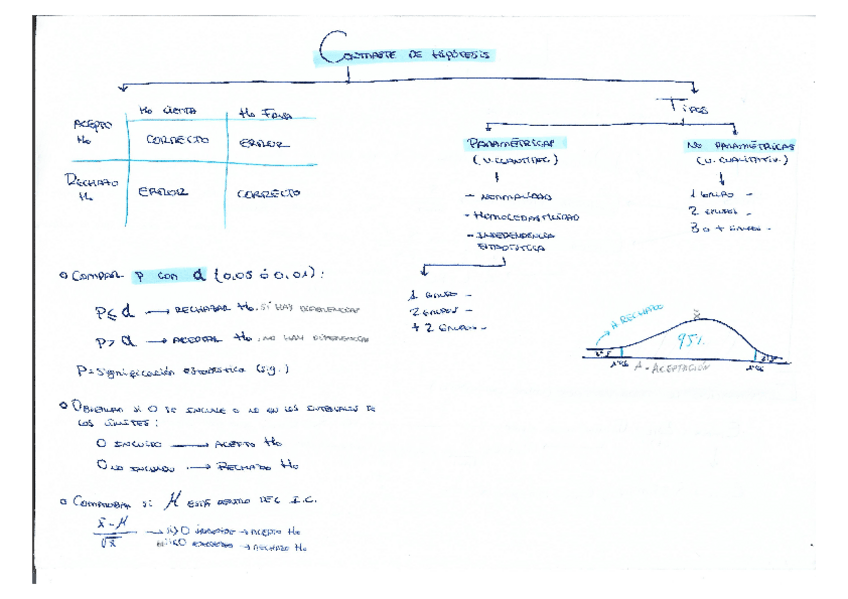 CONTRASTE DE HIPÓTESIS
H₀ CIERTA
H₀ FALSA
ACEPTO H₀
CORRECTO
ERROR
RECHAZO H₀
ERROR
CORRECTO
TIPOS
PARAMÉTRICAS
(V. CUANTITAT.)
- NORMALIDAD
- HOMOCEDASTICIDAD
- INDEPENDENCIA
ESTADÍSTICA
1 GRUPO -
2 GRUPOS -
+ 2 GRUPOS -
NO PARAMÉTRICAS
(V. CUALITATIV.)
1 GRUPO -
2 GRUPOS -
3 o + GRUPOS -
COMPARAR P CON α (0,05 ó 0,01):
P ≤ α → RECHAZAR H₀, SI HAY DIFERENCIAS
P > α → ACEPTAR H₀, NO HAY DIFERENCIAS
P = Significación estadística (sig.)
OBSERVAR SI 0 SE INCLUYE O NO EN LOS INTERVALOS DE
LOS LÍMITES:
0 INCLUIDO → ACEPTO H₀
0 NO INCLUIDO → RECHAZO H₀
COMPROBAR SI μ ESTÁ DENTRO DEL I.C.
x̄ - μ
→ ACEPTO H₀
→ RECHAZO H₀
A RECHAZO
x̄
95%
A - ACEPTACIÓN